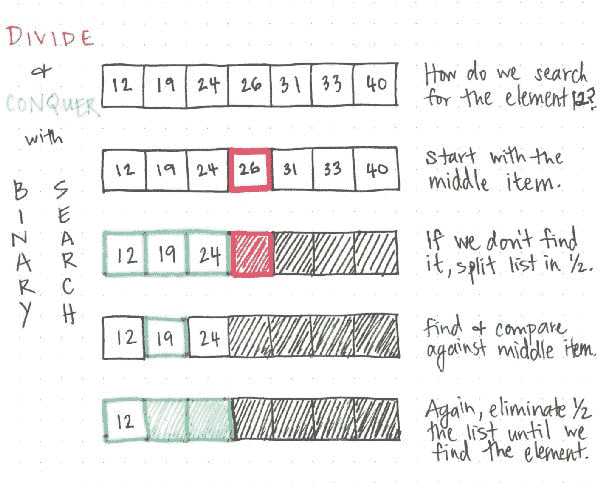 DIVIDE
&
CONQUER
with
BINARY
SEARCH
12 19 24 26 31 33 40
How do we search
for the element 12?
12 19 24 26 31 33 40
start with the
middle item.
12 19 24
If we don't find
it, split list in 1/2.
12 19 24
find & compare
against middle item.
12
Again, eliminate 1/2
the list until we
find the element.